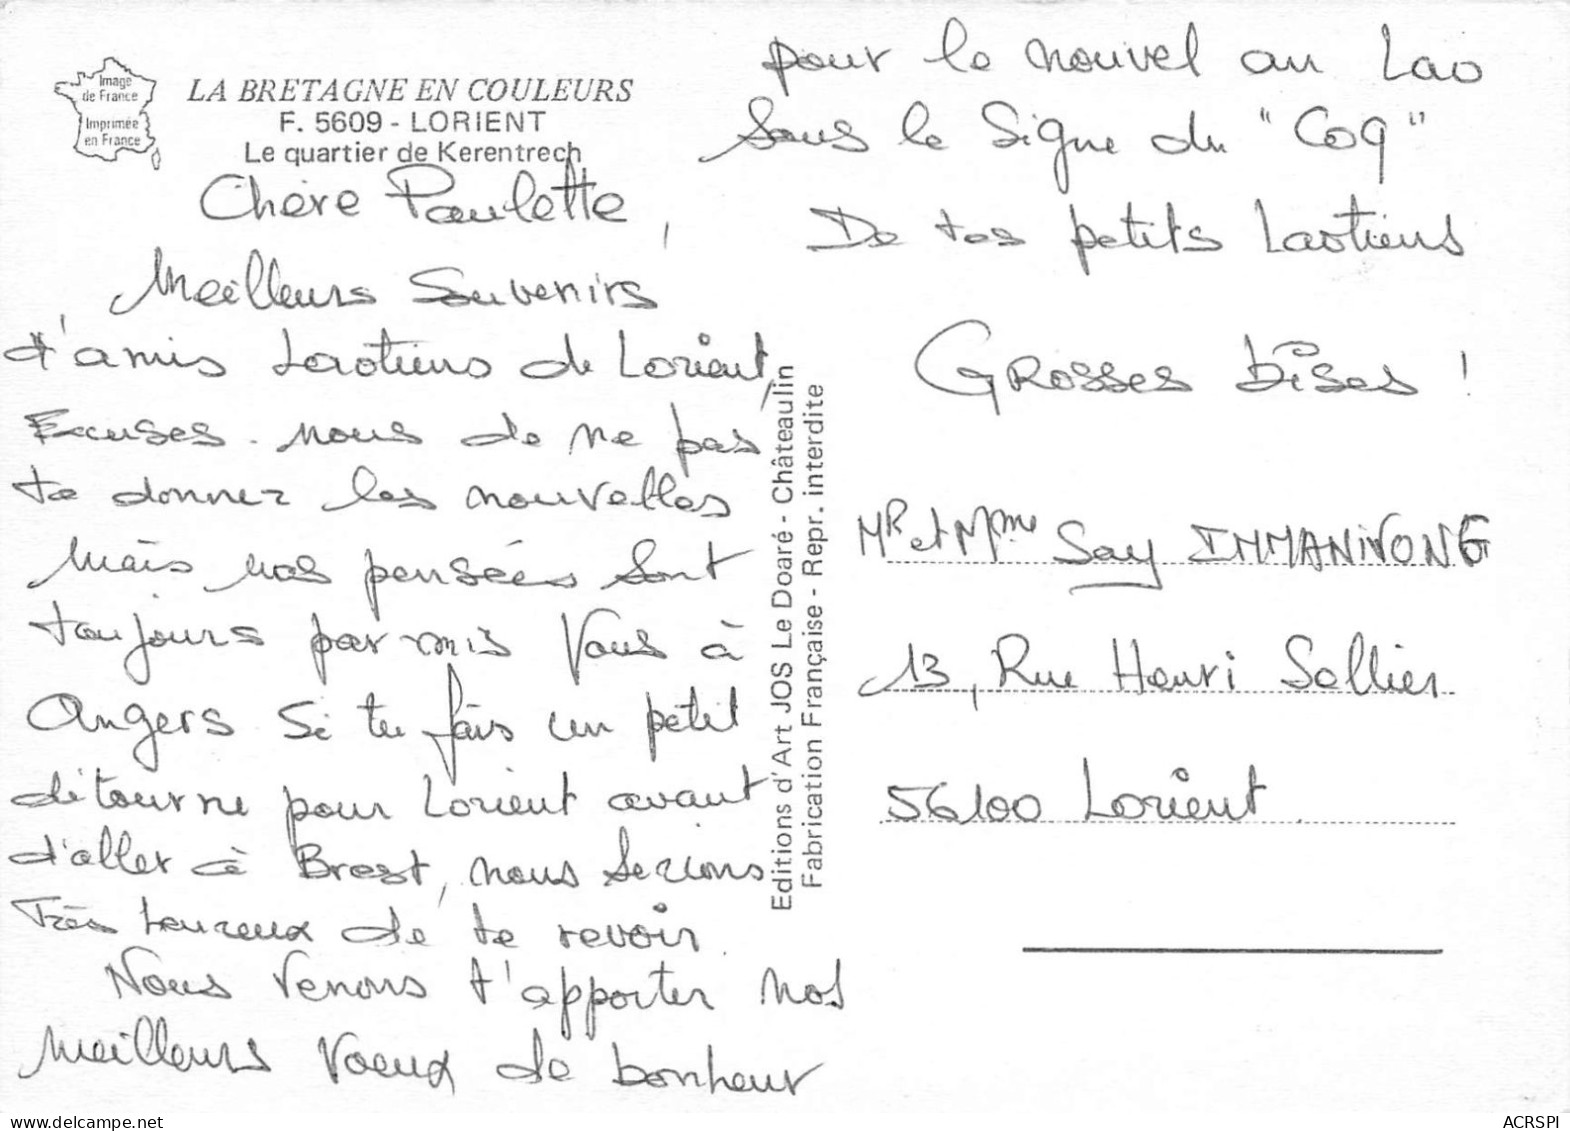 Image
de France
Imprimée
en France
LA BRETAGNE EN COULEURS
F. 5609 - LORIENT
Le quartier de Kerentrech
Chère Paulette,
Meilleurs Souvenirs
d'amis Laotiens de Lorient,
Excuses-nous de ne pas
te donner les nouvelles
mais nos pensées sont
toujours parmis vous à
Angers Si tu fais un petit
détourne pour Lorient avant
d'aller à Brest, nous serions
Très heureux de te revoir
Nous venons t'apporter nos
meilleurs voeux de bonheur
pour le nouvel an Lao
Sous le signe du "Coq"
De tes petits Laotiens
GROSSES bises !
Editions d'Art JOS Le Doaré - Châteaulin
Fabrication Française - Repr. interdite
MR et Mme Say IMMANIVONG
13, Rue Henri Sellier
56100 Lorient
ACRSPI